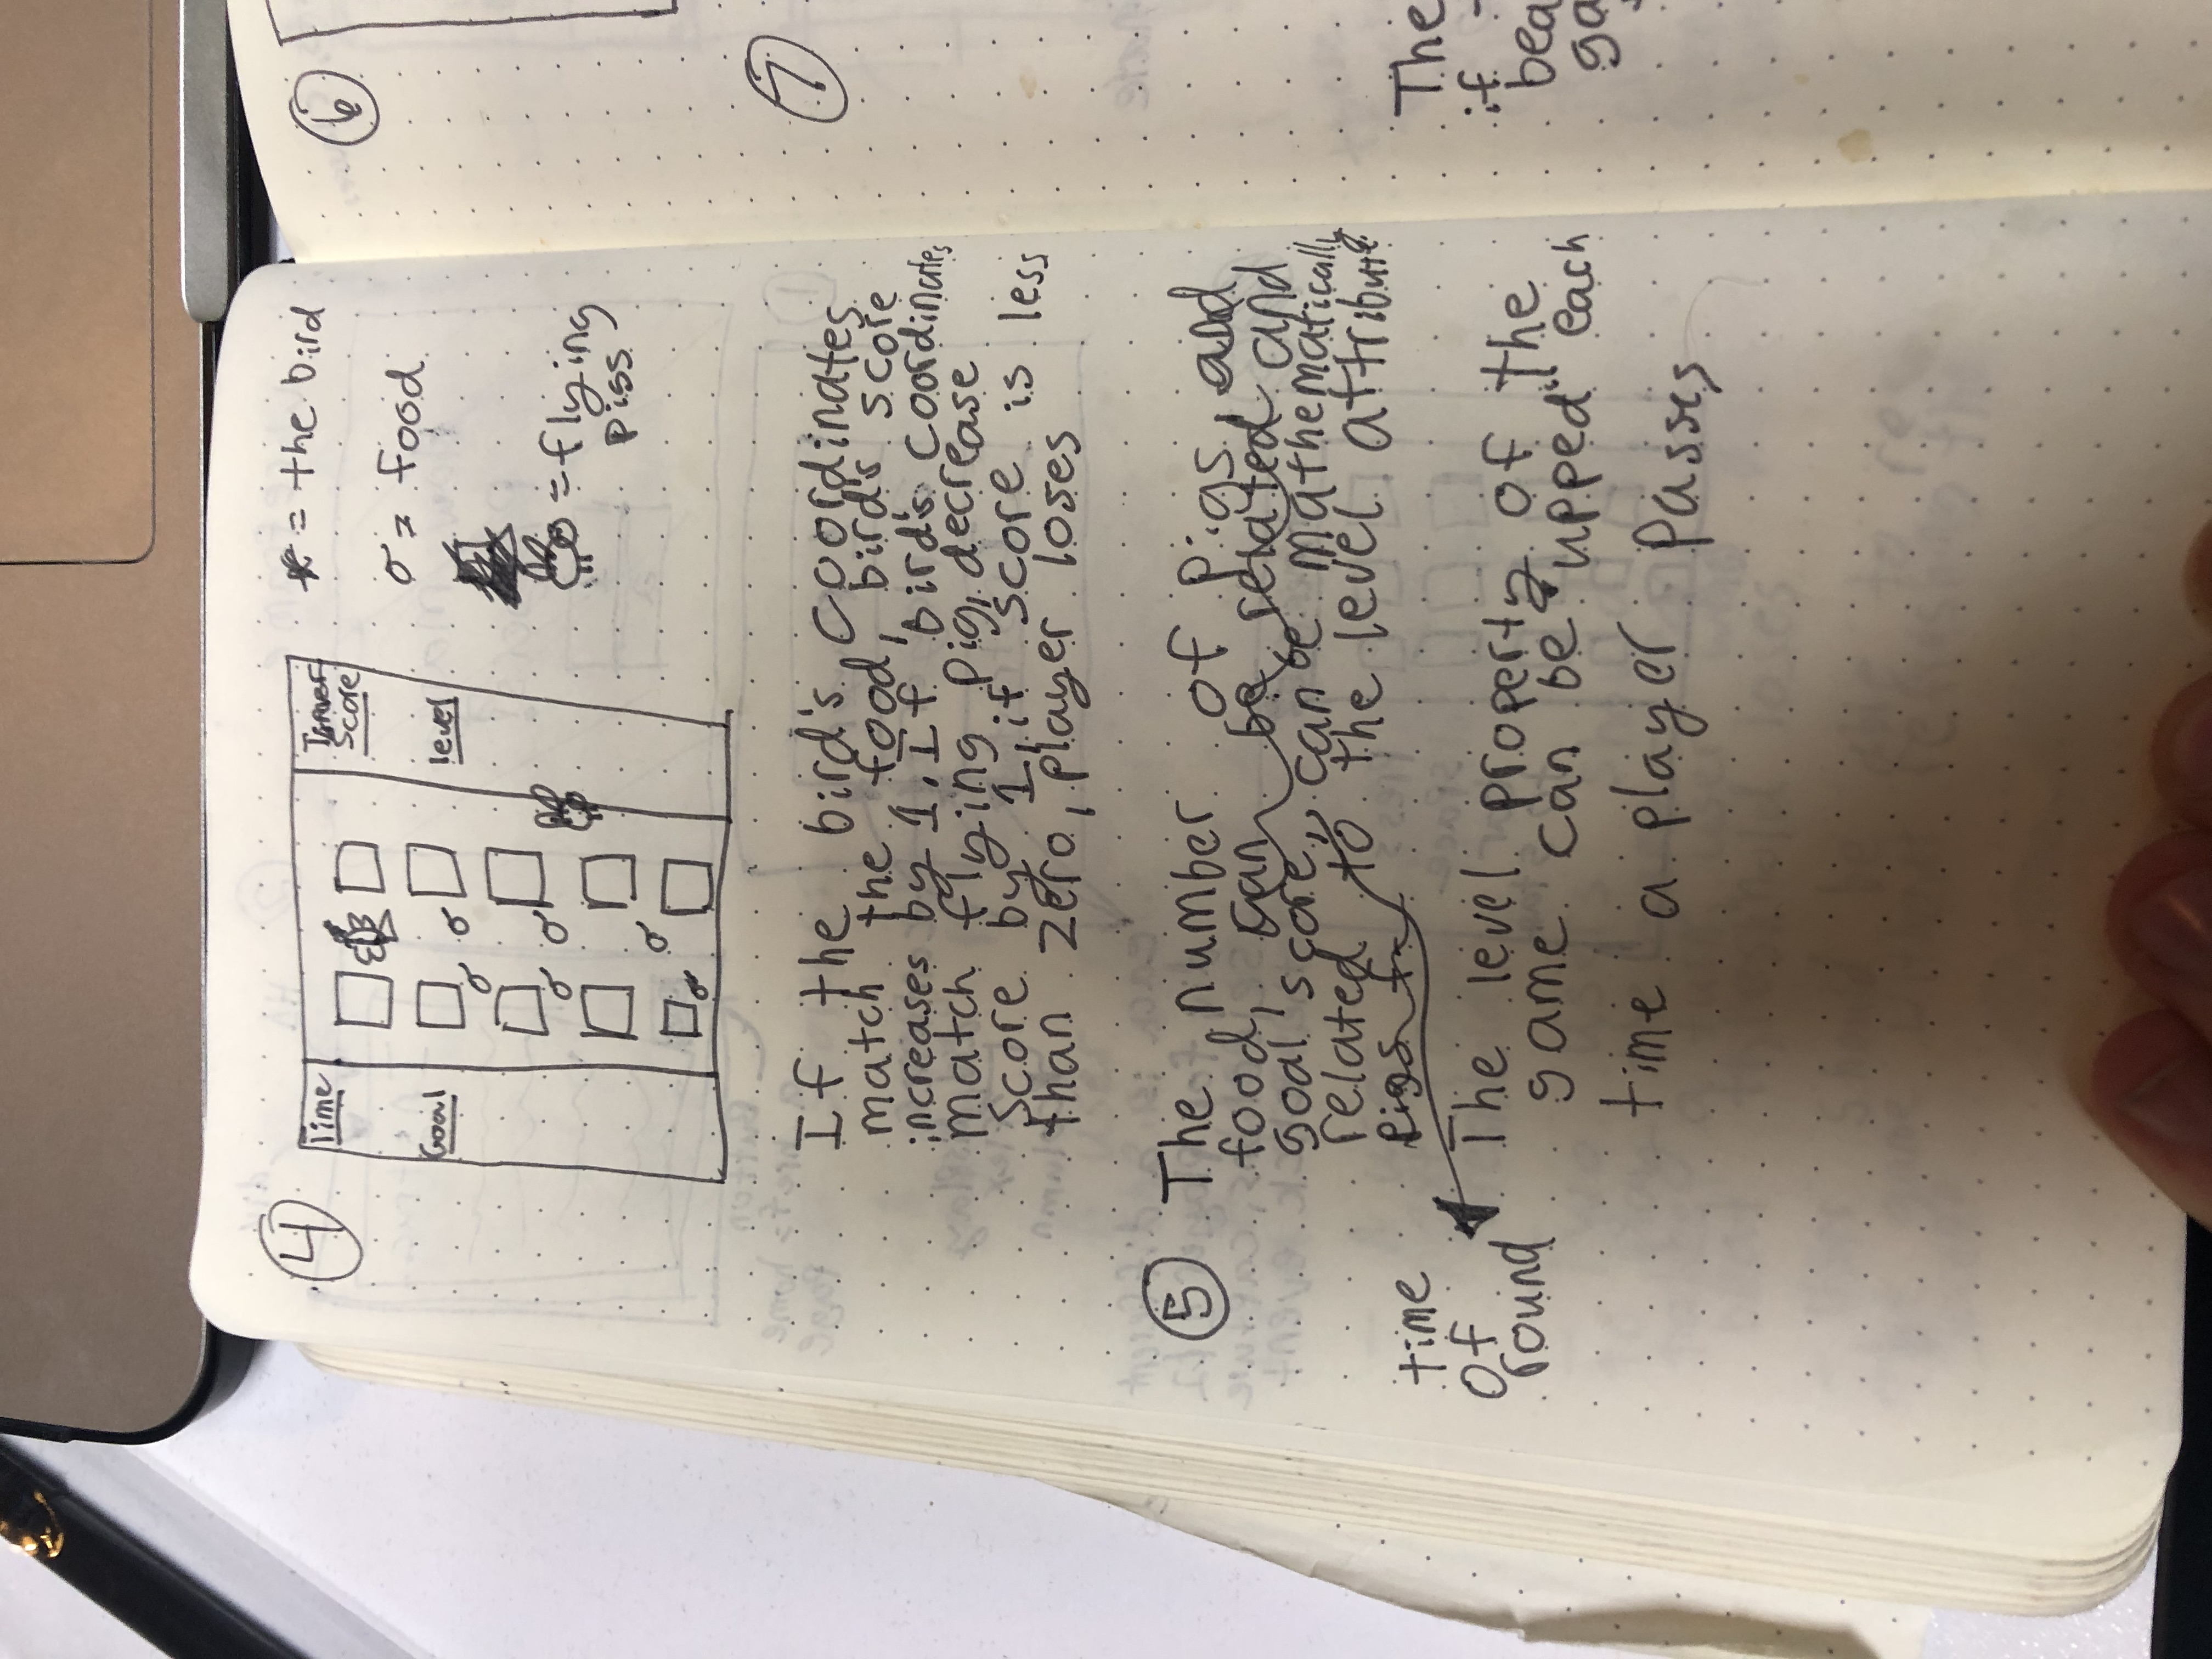 4
Time
Score
Goal
level
= the bird
= food
= flying
piss
If the bird's coordinates
match the food, bird's score
increases by 1. If bird's coordinates
match flying pig, decrease
score by 1, if score is less
than zero, player loses
5
The number of pigs, and
food, can be related and
goal score, can be mathematically
related to the level attribute
pigs
time
of
round
The level property of the
game can be "upped" each
time a player passes
6
7
The
if
bea
ga